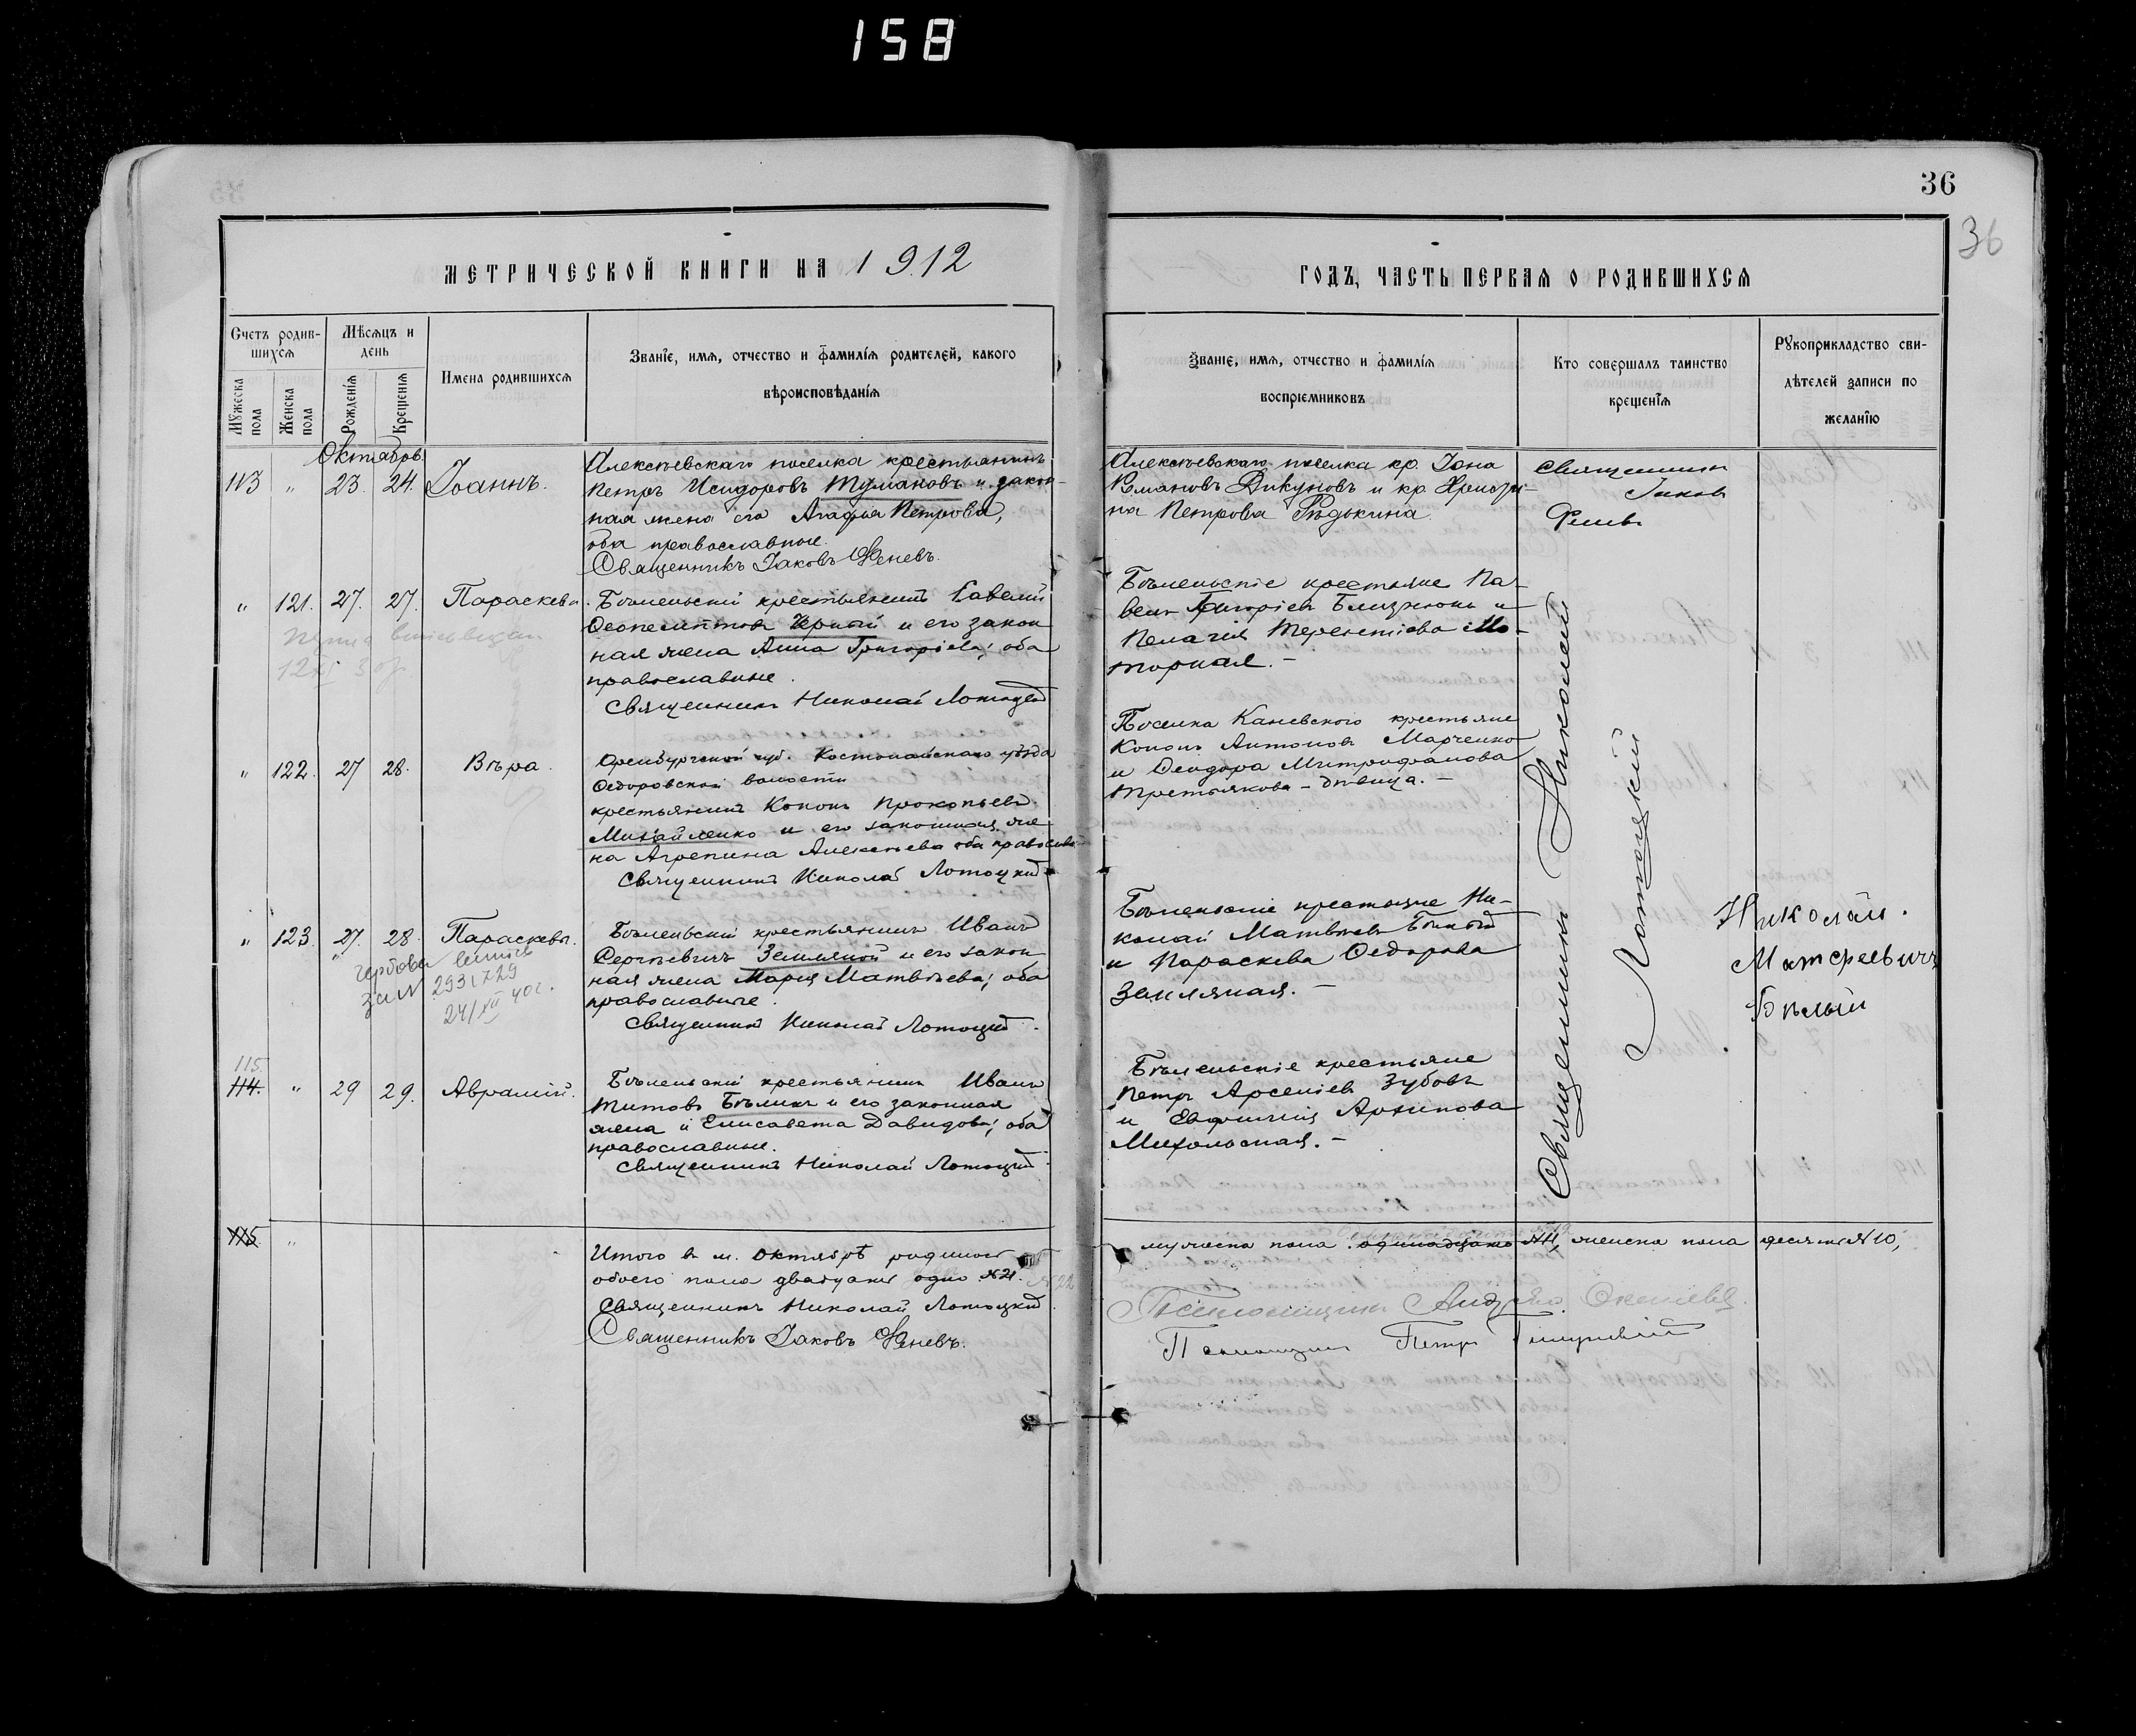 158
36
36
МЕТРИЧЕСКОЙ КНИГИ НА 1912
ГОДЪ, ЧАСТЬ ПЕРВАЯ О РОДИВШИХСЯ
Счетъ родив-
шихся
Мужеска пола
Женска пола
Мѣсяцъ и
день
Рожденія
Крещенія
Имена родившихся
Званіе, имя, отчество и фамилія родителей, какого
вѣроисповѣданія
Званіе, имя, отчество и фамилія
воспріемниковъ
Кто совершалъ таинство
крещенія
Рукоприкладство сви-
дѣтелей записи по
желанію
Октябрь
113 " 23. 24. Іоаннъ.
Алексѣевскаго поселка крестьянинъ
Петръ Исидоровъ Тумановъ и закон-
ная жена его Агафья Петрова,
оба православные.
Священникъ Іаковъ Феневъ.
Алексѣевскаго поселка кр. Іона
Романовъ Дикуновъ и кр. Христи-
на Петрова Рѣдькина
Священникъ
Іаковъ
Феневъ
" 121. 27. 27. Параскева.
Савелій
Черный и его закон
ная жена Анна Григоріева; оба
православные.
Священникъ Николай Лотоцкій
крестьяне Па-
велъ Григоріевъ Близнюкъ и
Пелагія Терентіева Мо-
торная. –
" 122. 27 28. Вѣра.
Оренбургской губ. Костонайскаго уѣзда
Ѳедоровской волости
крестьянинъ Кононъ Прокопьевъ
Михайленко и его законная же
на Агрепина Алексѣева оба православ.
Священникъ Николай Лотоцкій
Поселка Каневского крестьяне
Кононъ Антоновъ Марченко
и Ѳеодора Митрофанова
Третьякова – дѣвица. –
" 123. 27. 28. Параскева.
гербова
за № 2931729
24/XII 40 г.
крестьянинъ Иванъ
Сергѣевичъ Земляной и его закон
ная жена Марія Матвѣева; оба
православные.
Священникъ Николай Лотоцкій.
крестьяне Ни-
колай Матвѣевъ Бѣлый
и Параскева Ѳедорова
Земляная. –
Николай.
Матфеевичъ
Бѣлый
115.
114. " 29 29. Аврамій.
крестьянинъ Иванъ
Титовъ Бѣликъ и его законная
жена Елисавета Давидова; оба
православные.
Священникъ Николай Лотоцкій
крестьяне
Петръ Арсеніевъ Зубовъ
и Евфимія Архипова
Священникъ Николай
Лотоцкій
115. "
Итого въ м. Октябрѣ родилось
обоего пола двадцать одно №21. №22
Священникъ Николай Лотоцкій.
Священникъ Іаковъ Феневъ.
мужеска пола одинадцать №11, женска пола десять №10,
Псаломщикъ Андрей
Псаломщикъ Петръ